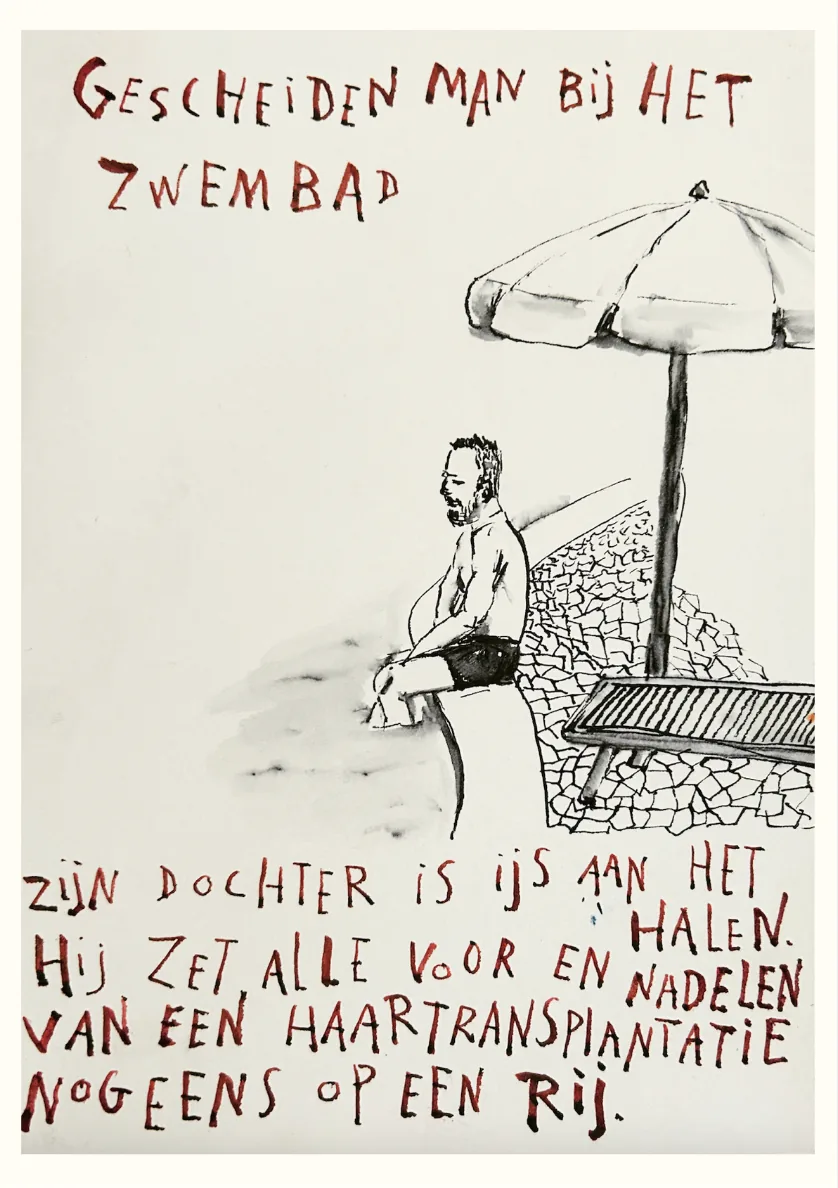 GESCHEiDEN MAN Bij HET
ZWEMBAD
ZijN DOCHTER iS ijS AAN HET
HALEN.
Hij ZET ALLE VOOR EN NADELEN
VAN EEN HAARTRANSPLANTATiE
NOGEENS OP EEN Rij.